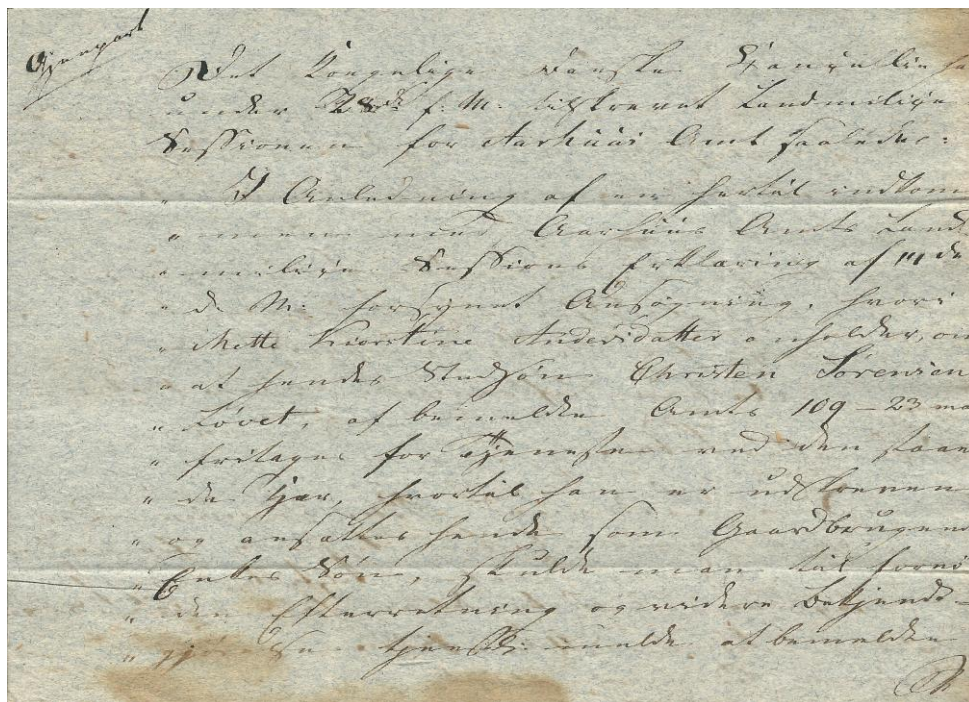 Gjenpart
Det Kongelige Danske Cancellie ha
under 28de f: M: tilskrevet Landmilitie
Sessionen for Aarhuus Amt saaledes:
" I Anledning af en hertil indkom
" men med Aarhuus Amts Land
" militie Sessions Erklæring af 11de
" d. M: forsynet Ansøgning, hvori
" Mette Kirstine Andersdatter anholder, om
" at hendes Stedsøn Christen Sørensen
" Løvet, af bemeldte Amts 109 - 23 maa
" fritages for Tjeneste ved den staaen
" de Hær, hvortil han er udskreven
" og ansættes hende som Gaardbrugend
" Enkes Søn, skulde man til forni
" den Efterretning og videre Bekjendt-
" gjørelse tjenstl: melde, at bemeldte